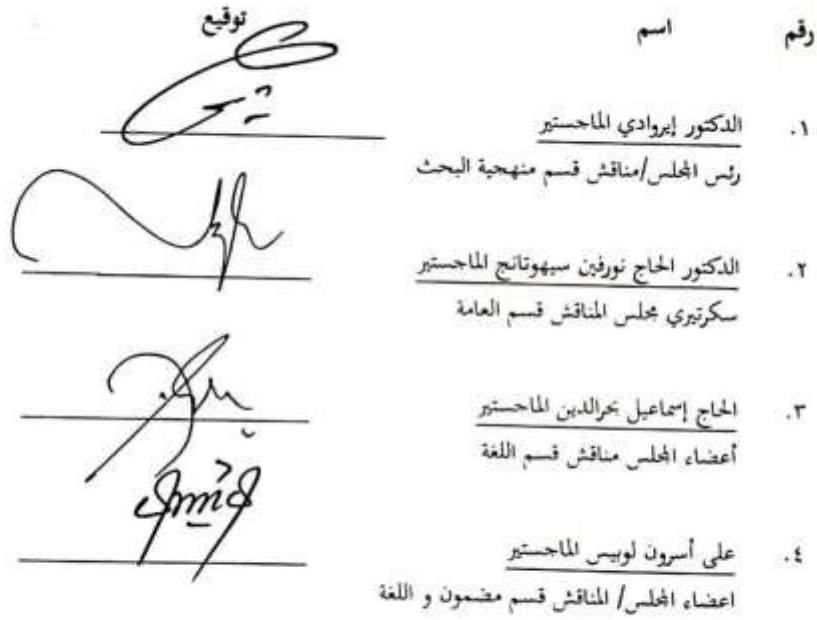 رقم اسم توقيع
١. الدكتور إيروادي الماجستير
رئس المجلس/مناقش قسم منهجية البحث
٢. الدكتور الحاج نورفين سيهوتانج الماجستير
سكرتيري مجلس المناقش قسم العامة
٣. الحاج إسماعيل بحرالدين الماجستير
أعضاء المجلس مناقش قسم اللغة
٤. على أسرون لوبيس الماجستير
اعضاء المجلس/ المناقش قسم مضمون و اللغة